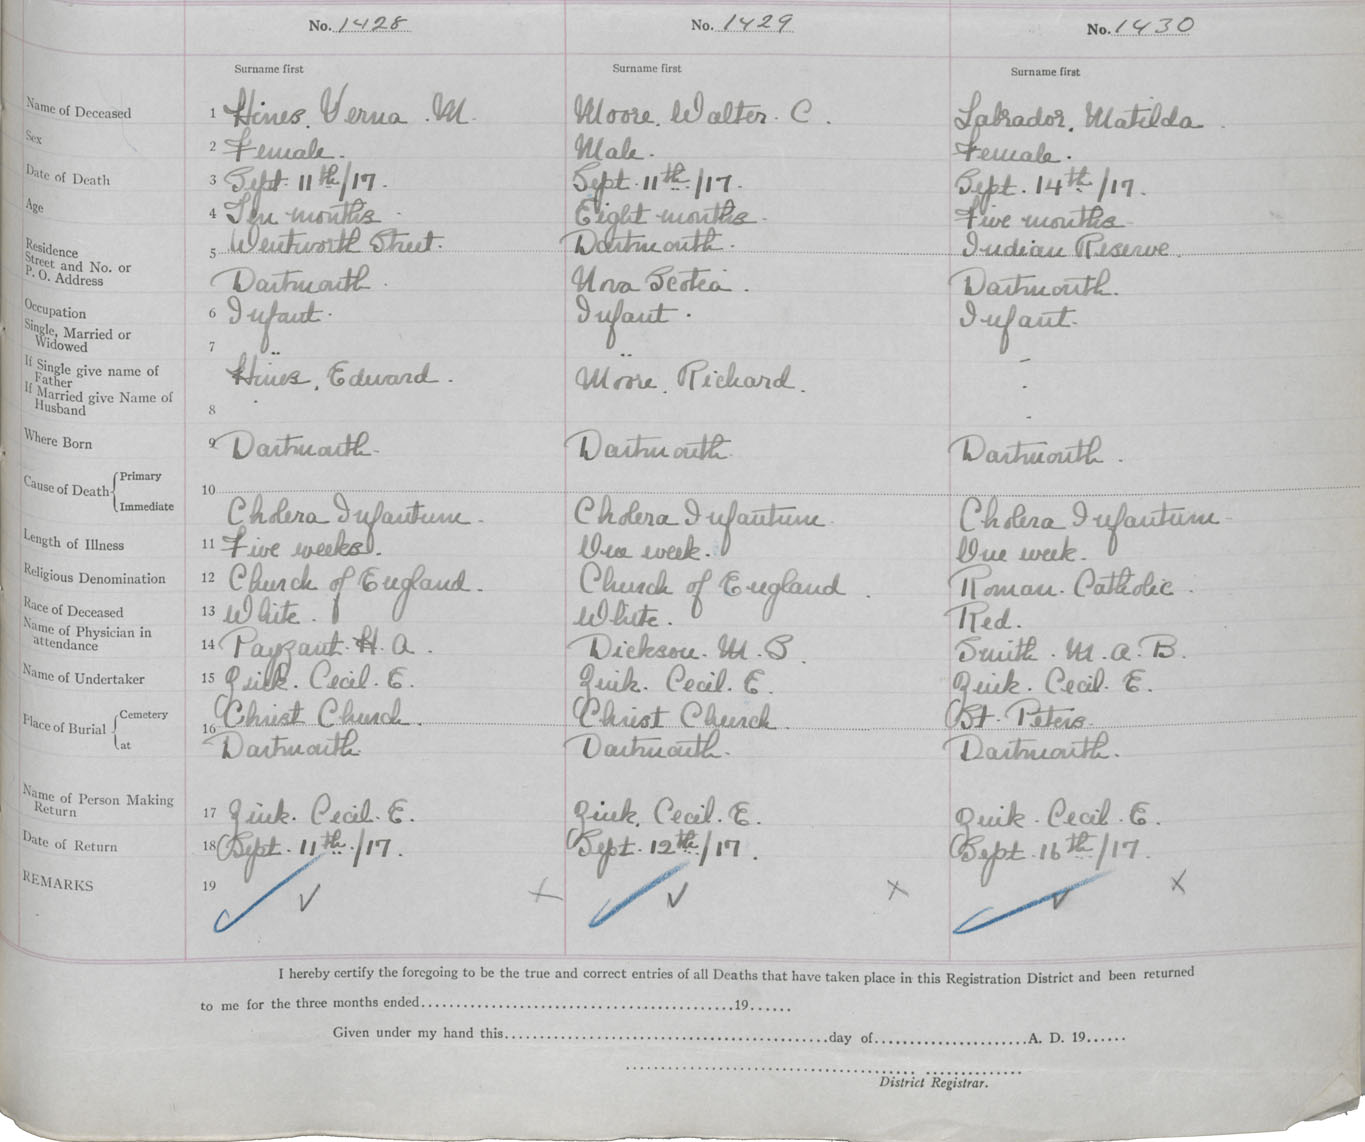 No. 1428 No. 1429 No. 1430
Surname first Surname first Surname first
Name of Deceased 1 Hines, Verna . M. Moore, Walter. C. Labrador, Matilda
Sex 2 Female. Male. Female.
Date of Death 3 Sept. 11th/17. Sept. 11th/17. Sept. 14th/17.
Age 4 Ten months Eight months. Five months.
Residence
Street and No. or
P. O. Address
5 Wentworth Street. Dartmouth. Indian Reserve.
Dartmouth. Nova Scotia. Dartmouth.
Occupation 6 Infant. Infant. Infant.
Single, Married or
Widowed
7 " " -
If Single give name of
Father
Hines, Edward. Moore, Richard.
If Married give Name of
Husband
8
Where Born 9 Dartmouth. Dartmouth. Dartmouth.
Cause of Death { Primary
10
Immediate
Cholera Infantum. Cholera Infantum. Cholera Infantum.
Length of Illness 11 Five weeks. One week. One week.
Religious Denomination 12 Church of England. Church of England. Roman. Catholic.
Race of Deceased 13 White. White. Red.
Name of Physician in
attendance
14 Payzant. H. A. Dickson. M. S. Smith. M. A. B.
Name of Undertaker 15 Zink. Cecil. E. Zink. Cecil. E. Zink. Cecil. E.
Place of Burial { Cemetery
16 Christ Church. Christ Church St. Peters.
at
Dartmouth. Dartmouth. Dartmouth.
Name of Person Making
Return
17 Zink. Cecil. E. Zink. Cecil. E. Zink. Cecil. E.
Date of Return 18 Sept. 11th/17. Sept. 12th/17. Sept. 16th/17.
REMARKS 19 ✓ x ✓ x ✓ x
I hereby certify the foregoing to be the true and correct entries of all Deaths that have taken place in this Registration District and been returned
to me for the three months ended..........19......
Given under my hand this..........day of..........A. D. 19......
District Registrar.